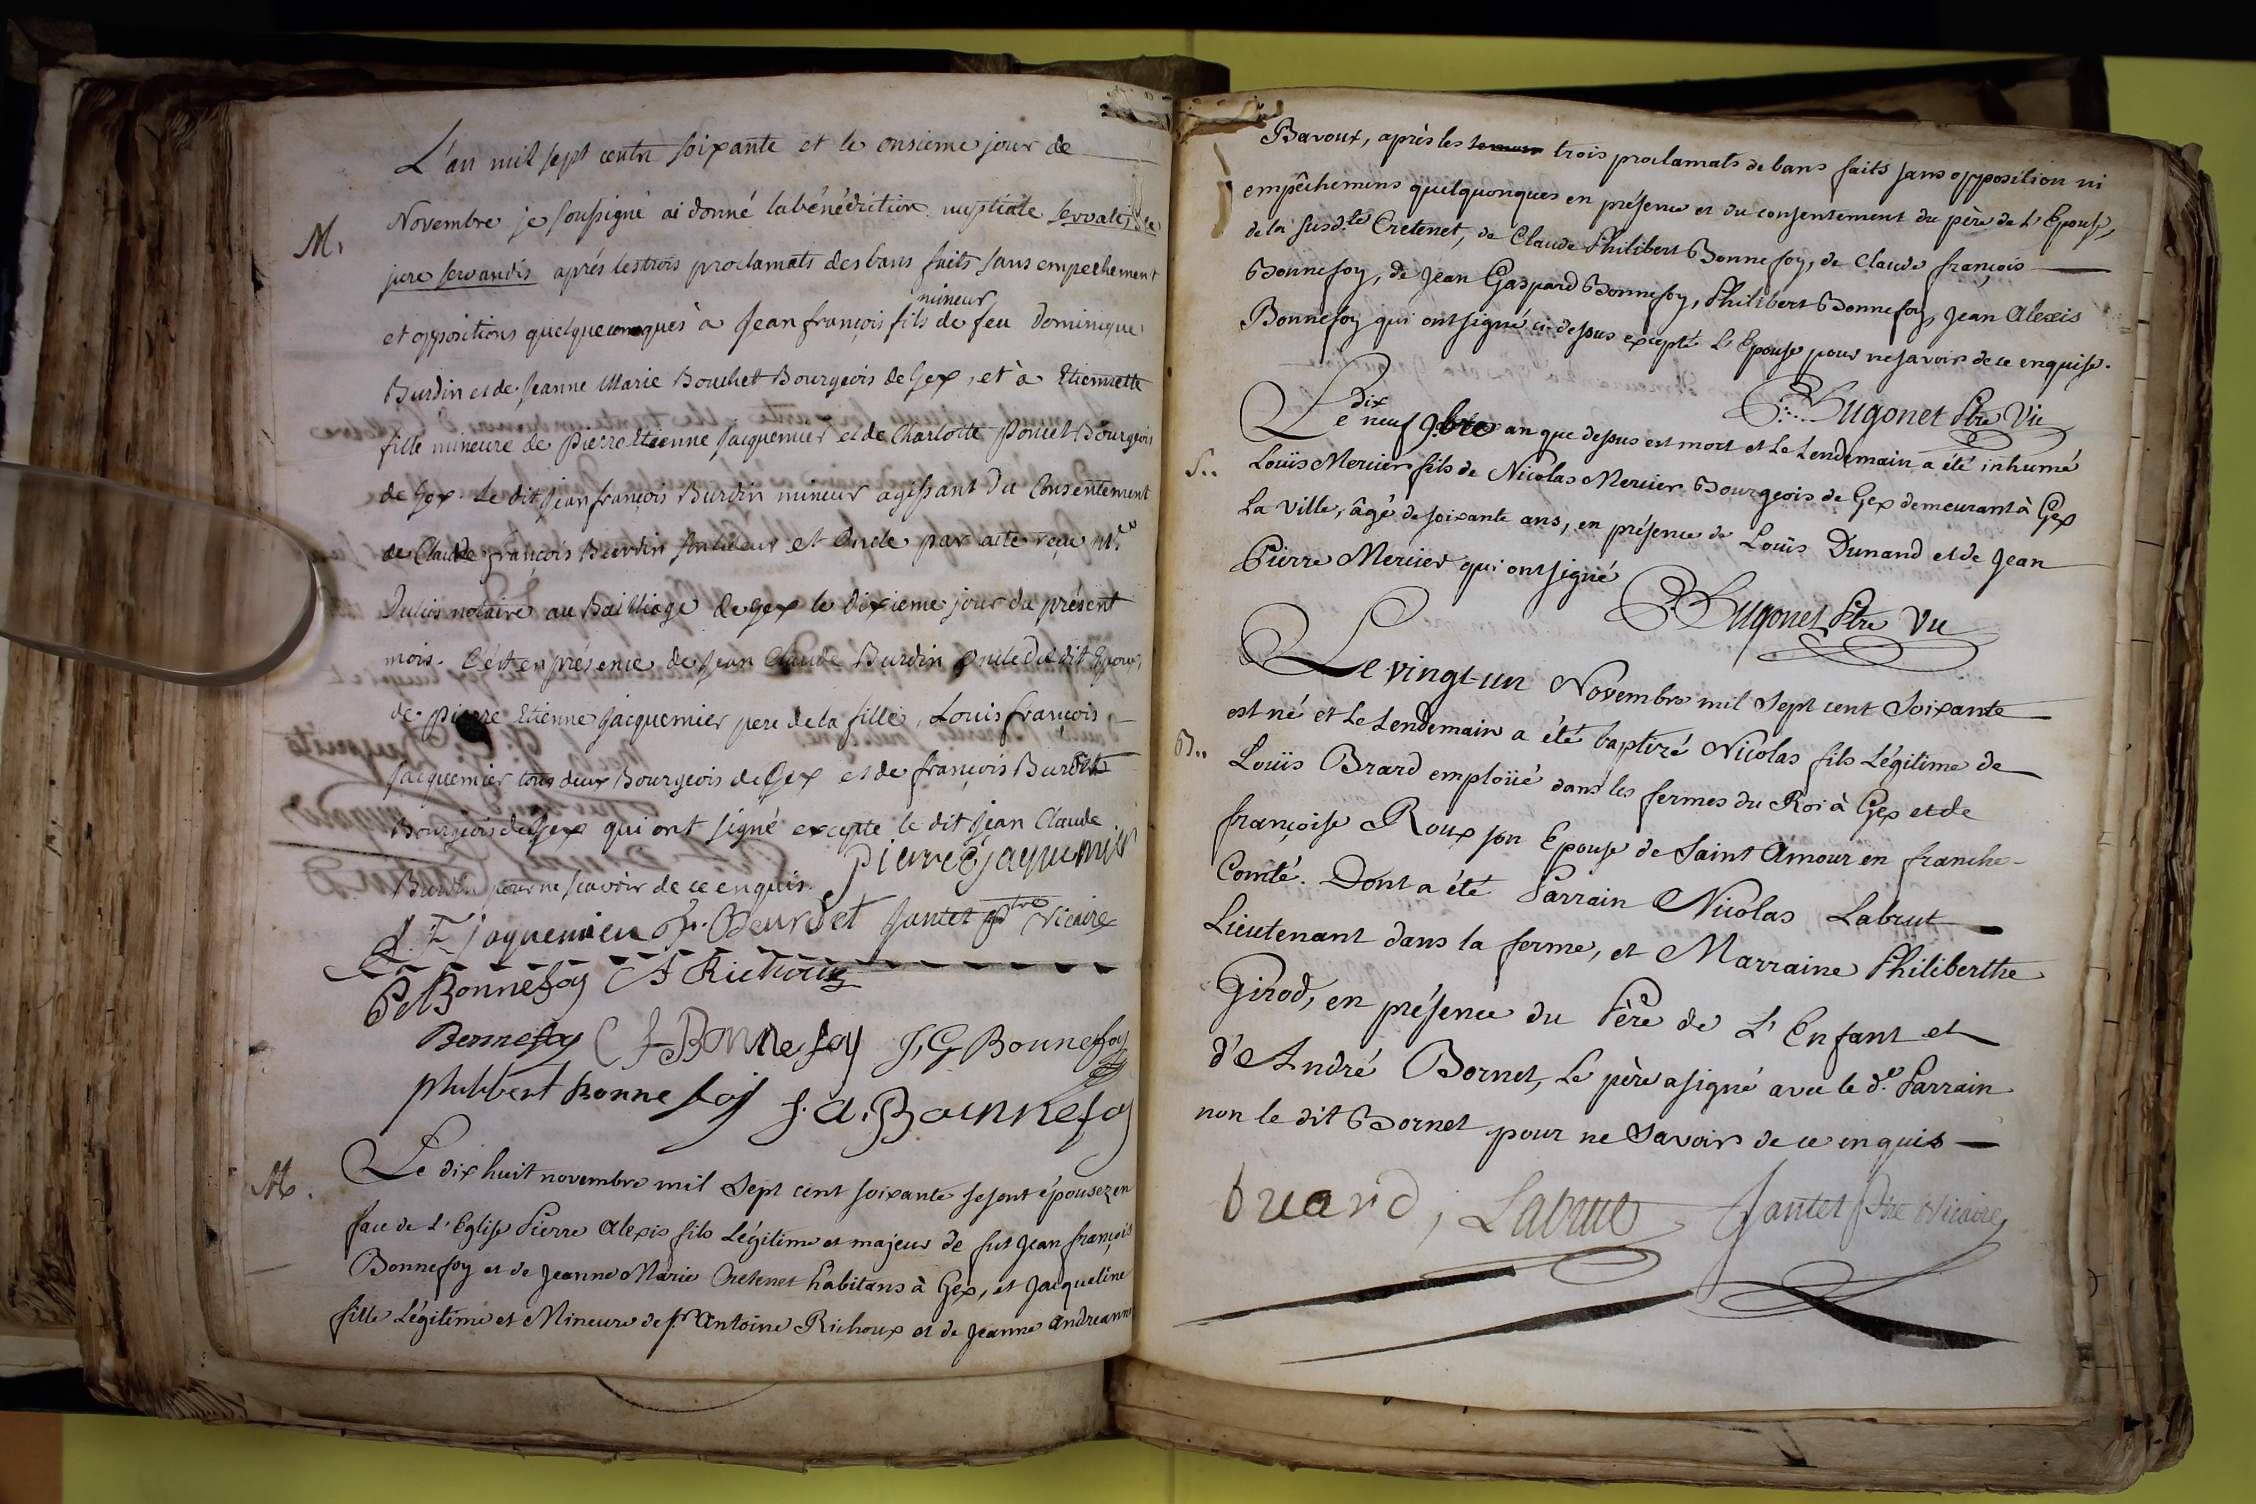 L'an mil sept cent soixante et le onsieme jour de
M. Novembre je soussigné ai donné la bénédiction nuptiale servatis de
jure servandis aprés les trois proclamats des bans faits sans empechement
et oppositions quelqueconques à Jean françois fils mineur de feu Dominique
Burdin et de Jeanne Marie Bouchet Bourgeois de Gex, et à Etiennette
fille mineure de Pierre Etienne Jacquemier et de Charlotte Poncet Bourgeois
de Gex. Le dit Jean françois Burdin mineur agissant du Consentement
de Claude françois Burdin et Oncle par acte reçu Mr.
notaire au Bailliage de Gex le dixieme jour du présent
mois. C'est en présence de Jean Claude Burdin Oncle du dit Epoux,
de Pierre Etienne Jacquemier pere de la fille, Louis françois
Jacquemier tous deux Bourgeois de Gex et de françois Burdet
Bourgeois de Gex qui ont signé excepte le dit Jean Claude
Burdin pour ne scavoir de ce enquis. pierre E jaquemier
L. F. jaquemier fr. Beurdet Jantet ptre Vicaire
Bonnefoy A Richoux
Bonnefoy C f Bonnefoy J. G Bonnefoy
philibert bonnefoy j. a. Bonnefoy
M. Le dix huit novembre mil Sept cent soixante se sont épousez en
face de L'Eglise Pierre Alexis fils Légitime et majeur de fut Jean françois
Bonnefoy et de Jeanne Marie Cretenet habitans à Gex, et Jacqueline
fille Légitime et Mineure de sr. Antoine Richoux et de Jeanne Andreanne
Bavoux, après les trois proclamats de bans faits sans opposition ni
empêchemens quelquonques en présence et du consentement du père de L'Epouse,
de la susd.te Cretenet, de Claude Philibert Bonnefoy, de Claude françois
Bonnefoy, de Jean Gaspard Bonnefoy, Philibert Bonnefoy, Jean Alexis
Bonnefoy qui ont signé ci-dessus excepté L'Epouse pour ne savoir de ce enquise.
Hugonet Ptre Vic
S.. Le dix neuf 9bre an que dessus est mort et Le Lendemain a été inhumé
Loüis Mercier fils de Nicolas Mercier Bourgeois de Gex demeurant à Gex
La Ville, âgé de soixante ans, en présence de Loüis Dunand et de Jean
Pierre Mercier qui ont signé
Hugonet Ptre Vic
Le vingt-un Novembre mil Sept cent Soixante
est né et Le Lendemain a été baptizé Nicolas fils Légitime de
B.. Loüis Brard emploüé dans les fermes du Roi à Gex et de
françoise Roux son Epouse de Saint Amour en franche-
Comté. Dont a été Parrain Nicolas Labrut
Lieutenant dans la ferme, et Marraine Philiberthe
Girod, en présence du Père de L'Enfant et
d'André Bornet, Le père a signé avec le d.t Parrain
non le dit Bornet pour ne Savoir de ce enquis
bruard, Labrut Jantet Ptre Vicaire